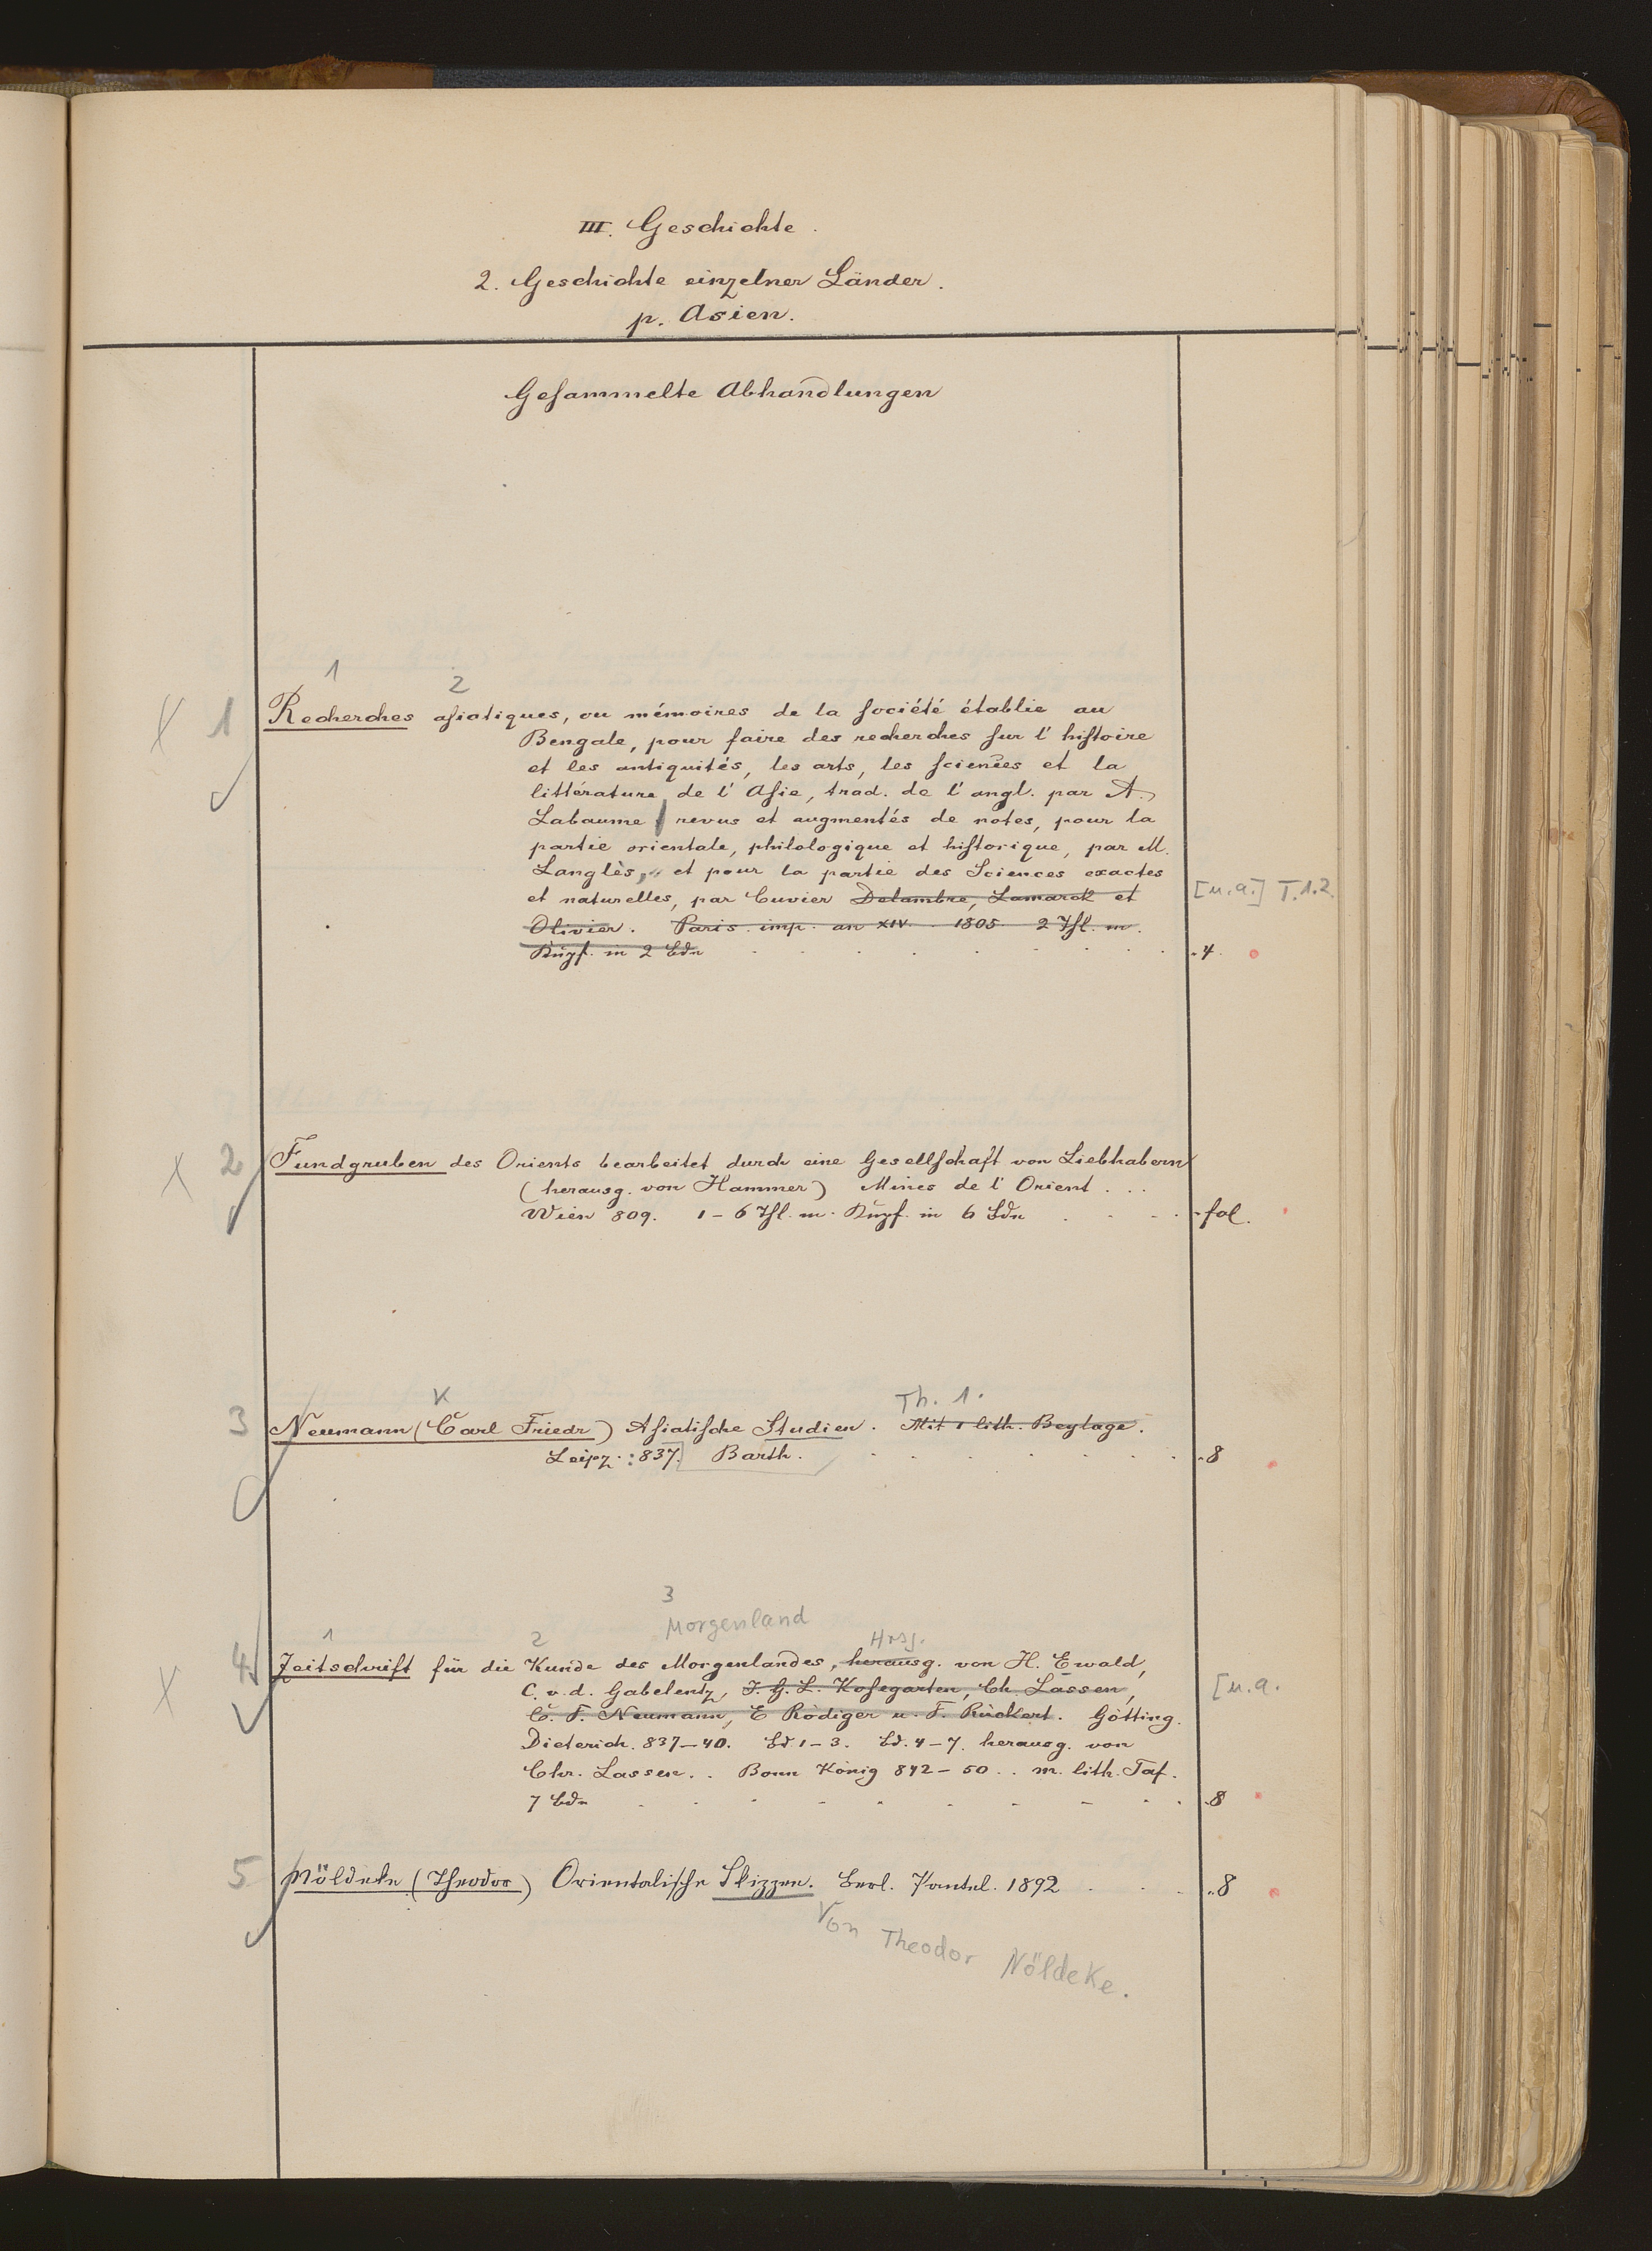 III. Geschichte.
2. Geschichte einzelner Länder.
p. Asien.
Gesammelte Abhandlungen
1 2
X 1 Recherches asiatiques, ou mémoires de la société établie au
Bengale, pour faire des recherches sur l'histoire
et les antiquités, les arts, les sciences et la
littérature de l'Asie, trad. de l'angl. par A.
Labaume revus et augmentés de notes, pour la
partie orientale, philologique et historique, par M.
Langlès, et pour la partie des Sciences exactes
et naturelles, par Cuvier Delambre, Lamarck et [u.a.] T.1.2
Olivier. Paris. imp. an XIV. 1805 2 Thl. m.
Kupf. in 2 Bdn . . . . . . . 4.
X 2 Fundgruben des Orients bearbeitet durch eine Gesellschaft von Liebhabern
(herausg. von Hammer) Mines de l'Orient . . .
Wien 809. 1–6 Thl. m. Kupf. in 6 Bdn . . . . fol.
Th. 1.
3 Neumann (Carl Friedr) Asiatische Studien. Mit 1 lith. Beylage.
K
Leipz. 837. Barth. . . . . . . . 8
3
Morgenland
1 2 Hrsg.
X 4 Zeitschrift für die Kunde des Morgenlandes, herausg. von H. Ewald,
C. v. d. Gabelentz, J. G. L. Kosegarten, Ch. Lassen, [u.a.
C. F. Neumann, E Rödiger u. F. Rückert. Götting.
Dieterich. 837–40. Bd. 1–3. Bd. 4–7. herausg. von
Chr. Lassen. . Bonn König 842–50 . . m. lith. Taf.
7 Bdn . . . . . . . . . 8
5 Nöldeke (Theodor) Orientalische Skizzen. Berl. Paetel. 1892 . . . 8
Von Theodor Nöldeke.